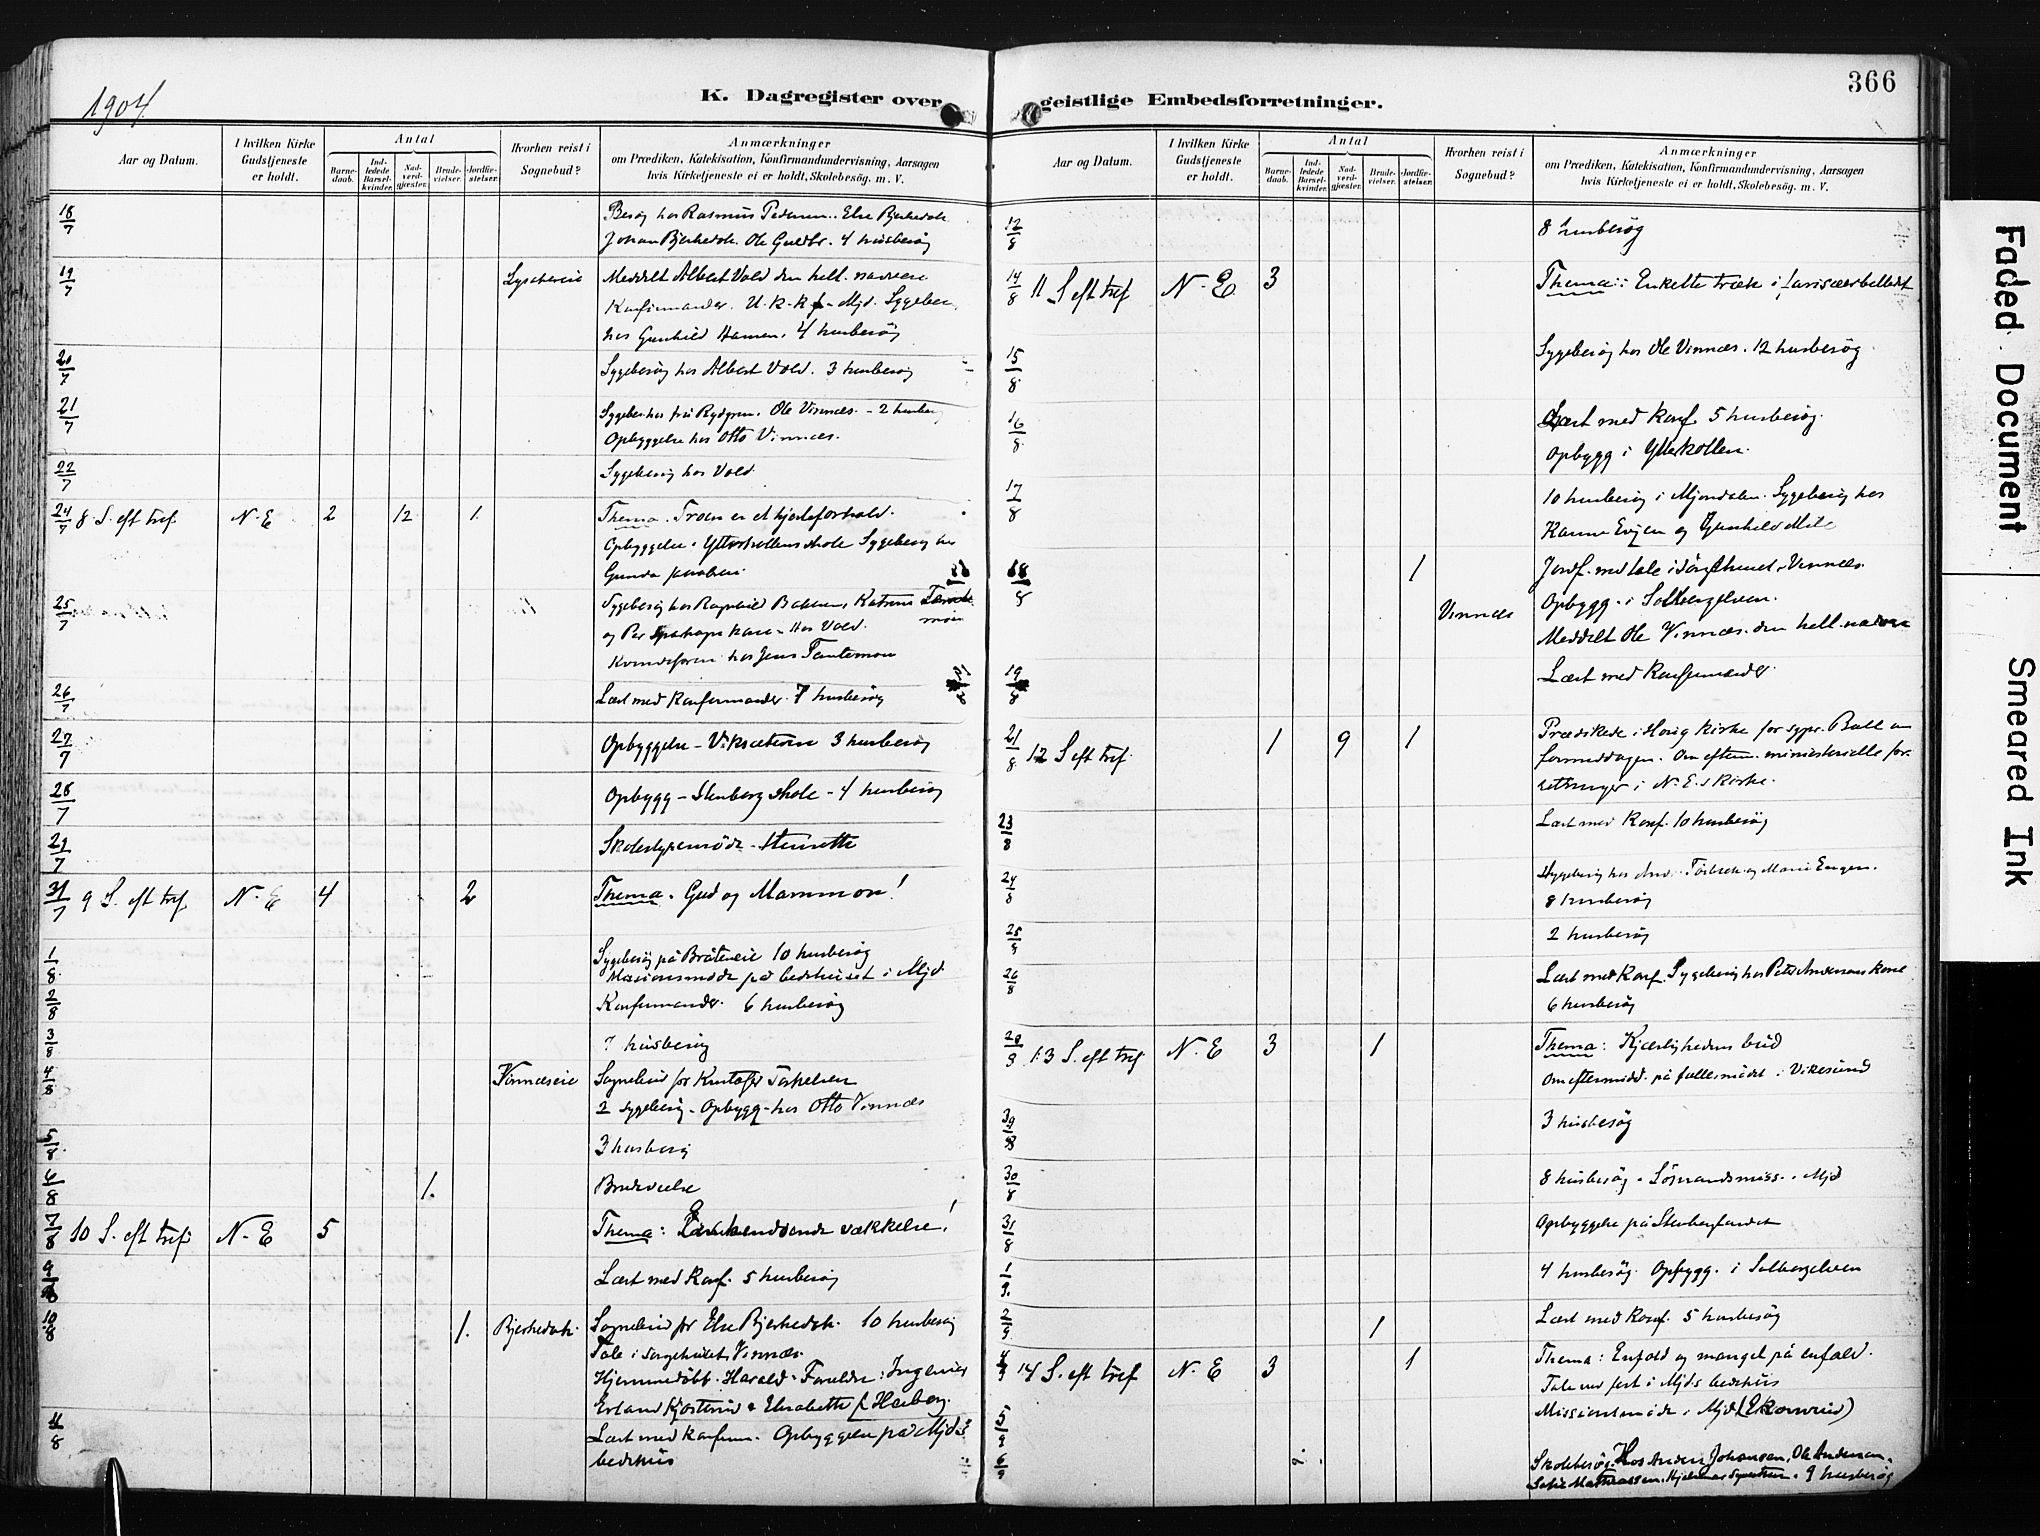 1904.
K. Dagregister over
Aar og Datum.
I hvilken Kirke Gudstjeneste er holdt.
Antal
Barnedaab.
Indledede Barselkvinder.
Nadverdgjæster.
Brudevielser.
Jordfæstelser.
Hvorhen reist i Sognebud?
Anmærkninger
om Prædiken, Katekisation, Konfirmandundervisning, Aarsagen
hvis Kirketjeneste ei er holdt, Skolebesög. m. V.
18/7 Besøg hos Rasmus Pedersen. Else Bjerkedok
Johan Bjerkedok. Ole Guldbr. 4 husbesøg
19/7 Meddelt Albert Vold den hell. nadvere
Konfirmander. U.k.k.f - Mjd. Sygebes.
hos Gunhild Hansen. 4 husbesøg
20/7 Sygebesøg hos Albert Vold. 3 husbesøg
21/7 Sygebes hos fru Rydgren. Ole Vinnæs. - 2 husbes
Opbyggelse hos Otto Vinnæs.
22/7 Sygebesøg hos Vold
24/7 8 S. eft tref. N. E 2 12 1. Thema. Troen er et hjerteforhold.
Opbyggelse. Ytterkollens skole Sygebesøg hos
Gunda Jacobsen
25/7 Sygebesøg hos Ragnhild Bakken, Katrine
og Per kone - Hos Vold.
Kvindeforen. hos Jens Tantemon
26/7 Læst med Konfirmander. 7 husbesøg
27/7 Opbyggelse - Viksæteren 3 husbesøg
28/7 Opbygg - Stenberg skole - 4 husbesøg
29/7 Skolestyremøde -
31/7 9 S. eft tref N. E 4 2 Thema. Gud og Mammon!
1/8 Sygebesøg på Bråteneie 10 husbesøg
Missionsmøde på bedehuset i Mjd.
2/8 Konfirmander. 6 husbesøg
3/8 7 husbesøg
4/8 Vinnæseie Sognebud for Kristofer Torkelsen
2 sygebesøg - Opbygg - hos Otto Vinnæs
5/8 3 husbesøg
6/8 1. Brudevielse
7/8 10 S. eft tref. N. E 5 Thema: vækkelse!
9/8 Læst med Konf. 5 husbesøg
10/8 1. Bjerkedok. Sognebud for Else Bjerkedok. 10 husbesøg
Tale i sørgehuset, Vinnæs.
Hjemmedøbt. Harald. Forældre: Ingeniør
Erland Kjøsterud & Elisabeth f. Hasberg.
11/8 Læst med konfirm. Opbyggelse på Mjd's
bedehus
366
geistlige Embedsforretninger.
Aar og Datum.
I hvilken Kirke Gudstjeneste er holdt.
Antal
Barnedaab.
Indledede Barselkvinder.
Nadverdgjæster.
Brudevielser.
Jordfæstelser.
Hvorhen reist i Sognebud?
Anmærkninger
om Prædiken, Katekisation, Konfirmandundervisning, Aarsagen
hvis Kirketjeneste ei er holdt, Skolebesög. m. V.
12/8 8 husbesøg
14/8 11 S eft tref N. E 3 Thema: Enkelte træk i farisæerbilledet
15/8 Sygebesøg hos Ole Vinnæs. 12 husbesøg
16/8 Læst med Konf 5 husbesøg.
Opbygg i Ytterkollen.
17/8 10 husbesøg i Mjøndalen. Sygebesøg hos
Karen Evjen og Gunhild Mile
18/8 1 Jordf. med tale i sørgehuset, Vinnæs.
Opbygg. i Solbergelven.
Vinnæs Meddelt Ole Vinnæs. den hell. nadvere
19/8 Læst med konfirmander
21/8 12 S eft tref. 1 9 1 Prædikede i Haug kirke for sgpr. Bull om
formiddagen. Om efterm. ministerielle for-
retninger i N. E.s kirke.
23/8 Læst med Konf. 10 husbesøg
24/8 Sygebesøg hos And. og Marie Engen.
8 husbesøg
25/8 2 husbesøg
26/8 Læst med Konf. Sygebesøg hos Peter Andersens kone
6 husbesøg
28/8 13 S. eft tref N. E 3 1 Thema: Kjærlighedens bud
Om eftermidd. på fællesmødet i Vikesund
29/8 3 husbesøg
30/8 8 husbesøg - Sømandsmiss. - Mjd
31/8 Opbyggelse på Stenberglandet
1/9. 4 husbesøg. Opbygg. i Solbergelven
2/9 1 Læst med Konf. 5 husbesøg
4/9 14 S. eft tref N. E 3 1 Thema: Enfold og mangel på enfold.
Tale ved fest i Mjd.s bedehus
5/9 Missionsmøde i Mjd (Skonnrud)
6/9 Skolebesøg. Hos Anders Johansen, Ole Andersen,
Sofie Mathiassen, Hjalmar Syvertsen. 9 husbesøg
Faded Document
Smeared Ink